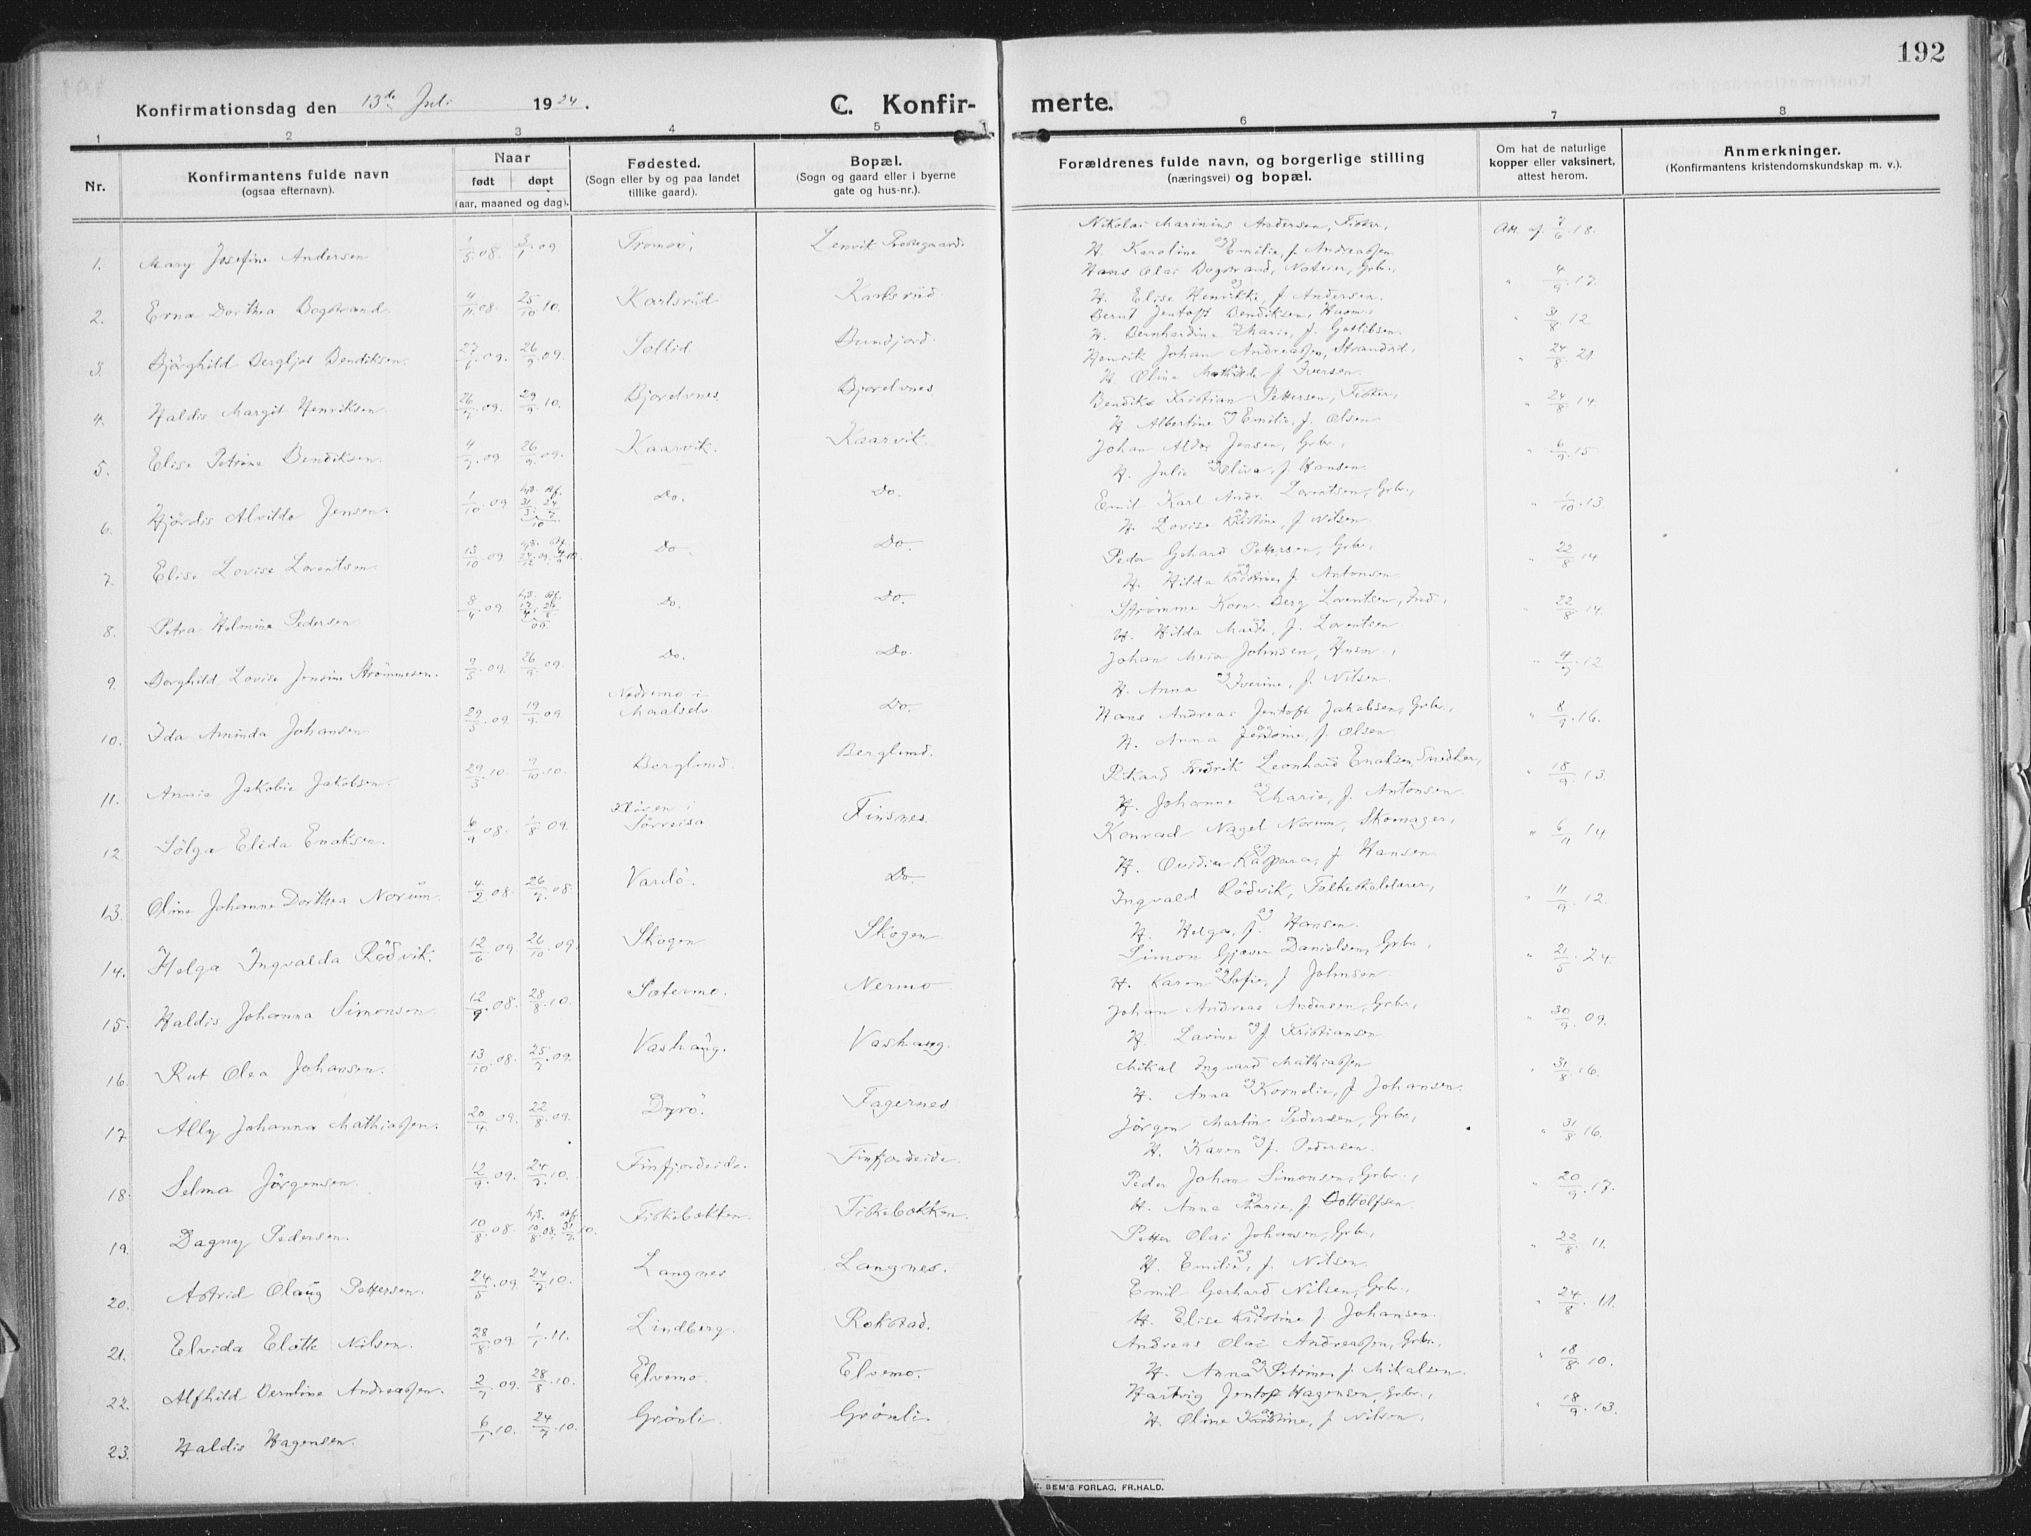 192
Konfirmationsdag den 13de Juli 1924.
C. Konfir-merte.
1 2 3 4 5 6 7 8
Nr.
Konfirmantens fulde navn
(ogsaa efternavn).
Naar
født døpt
(aar, maaned og dag).
Fødested.
(Sogn eller by og paa landet
tillike gaard).
Bopæl.
(Sogn og gaard eller i byerne
gate og hus-nr.).
Forældrenes fulde navn, og borgerlige stilling
(næringsvei) og bopæl.
Om hat de naturlige
kopper eller vaksinert,
attest herom.
Anmerkninger.
(Konfirmantens kristendomskundskap m. v.).
1. Mary Josefine Andersen 1/5 08. 3/1 09 Tromsö, Lenvik Prestegaard.
Nikolai Marinius Andersen, Fisker, Att. af 7/6 18.
H. Karoline og Emilie, f. Andreassen.
2. Erna Dorthea Bogstrand 4/11 08. 25/10 10. Karlsrüd Karlsrüd.
Hans Olai Bogstrand, Noterer, Grbr., " 4/9 17.
H. Elise og Henrikke, f. Andersen.
3. Bjørghild Bergljot Bendiksen. 27/6 09. 26/9 09. Sollid Bundjord.
Bernt Jentoft Bendiksen, Husm., " 31/8 12
H. Bernhardine Marie, f. Gottlibsen.
4. Haldis Margit Henriksen 29/9 10. Bjorelvnes. Bjorelvnes
Henrik Johan Andreassen, Strandsid., " 24/8 21.
H. Oline Mathilde f. Iversen.
5. Elise Petrine Bendiksen. 26/9 09. Kaarvik. Kaarvik.
Bendiks Kristian Pettersen, Fisker, " 24/8 14
H. Albertine og Emilie, f. Olsen
6. Hjørdis Alvilde Jensen. 1/10 09 Do. Do.
Johan Aldor Jensen, Grbr., " 6/9 15
H. Julie og Elisa, f. Hansen.
7. Elise Lovise Lorentsen 13/10 09 Do. Do.
Emil Karl Andr. Lorentsen, Grbr., " 1/10 13
H. Lovise Kristine, f. Nilsen
8. Petra Helmine Pedersen 8/4 09. Do. Do.
Peder Gehard Pettersen, Grbr., " 22/8 14
H. Hilda og Kristine, f. Antonsen
9. Borghild Lovise Jensine Strömmesen. 9/5 09. 26/9 09. Do. Do.
Strømme Korn. Berg Lorentsen, Ind., " 22/8 14.
H. Hilda Marie, f. Lorentsen
10. Ida Aminda Johansen 29/5 09 19/9 09 Nedremo i
Maalselv Do.
Johan Meier Johnsen, Husm., " 4/9 12
H. Anna og Iverine, f. Nilsen.
11. Annie Jakobie Jakobsen. 29/5 10. 9/10 10. Berglund. Berglund.
Hans Andreas Jentoft Jakobsen, Grbr., " 8/9 16.
H. Anna og Jensine, f. Olsen
12. Solga Elida Enoksen. 6/9 08. 1/8 09. Kløven i
Sörreisa Finsnes.
Rikard Fredrik Leonhard Enoksen, Snedker, " 18/9 13.
H. Johanne og Marie, f. Antonsen.
13. Oline Johanne Dorthea Norüm. 4/2 08. 26/7 08. Vardö. Do.
Konrad Nagel Norum, Skomager, " 6/11 14
H. Ovidia og Kaspara, f. Hansen
14. Helga Ingvalda Rödvik. 12/6 09. 26/10 09. Skogen Skogen.
Ingvald Rödvik, Folkeskolelærer, " 11/9 12.
H. Helga, og f. Hansen.
15. Haldis Johanna Simonsen 12/9 08. 28/8 10. Sætermo. Nermo
Simon Gjæver Danielsen, Grbr., " 21/5 24
H. Karen og Sofie, f. Johnsen.
16. Rut Olea Johansen. 13/10 08. 25/7 09. Vashaüg. Vashaug.
Johan Andreas Andersen, Grbr., " 30/9 09.
H. Lavine og f. Kristiansen
17. Ally Johanna Mathiassen. 20/4 09. 22/8 09. Dyrö. Fagernes
Mikal Ingvard Mathiassen " 31/8 16.
H. Anna og Kornelie, f. Johansen.
18. Selma Jörgensen. 12/9 09. 24/7 10. Finfjordeide. Finfjordeide.
Jörgen Martin Pedersen, Grbr., " 31/8 16.
H. Karen og f. Pedersen.
19. Dagny Pedersen. 10/8 08. Fiskebækken. Fiskebækken.
Peder Johan Simonsen, Grbr., " 20/9 17.
H. Anna og Marie, f. Dottolfsen
20. Astrid Olaüg Pettersen. 24/5 09 24/7 10. Langnes Langnes.
Petter Olai Johansen, Grbr., " 22/8 11.
H. Emilie, og f. Nilsen
21. Elvida Elotte Nilsen. 28/8 09 1/1 11. Lindberg. Rokstad.
Emil Gerhard Nilsen, Grbr., " 24/8 11.
H. Elise og Kristine f. Johansen.
22. Alfhild Berntine Andreassen. 2/7 09. 28/8 10. Elvemo. Elvemo.
Andreas Olai Andreassen, Grbr., " 18/8 10.
H. Anna og Petrine f. Mikalsen.
23. Haldis Hagensen. 6/1 10. 24/7 10. Grönli. Grönli.
Hartvig Jentoft Hagensen Grbr., " 18/9 13.
H. Oline og Kristine, f. Nilsen,
SEM'S FORLAG, FR.HALD.